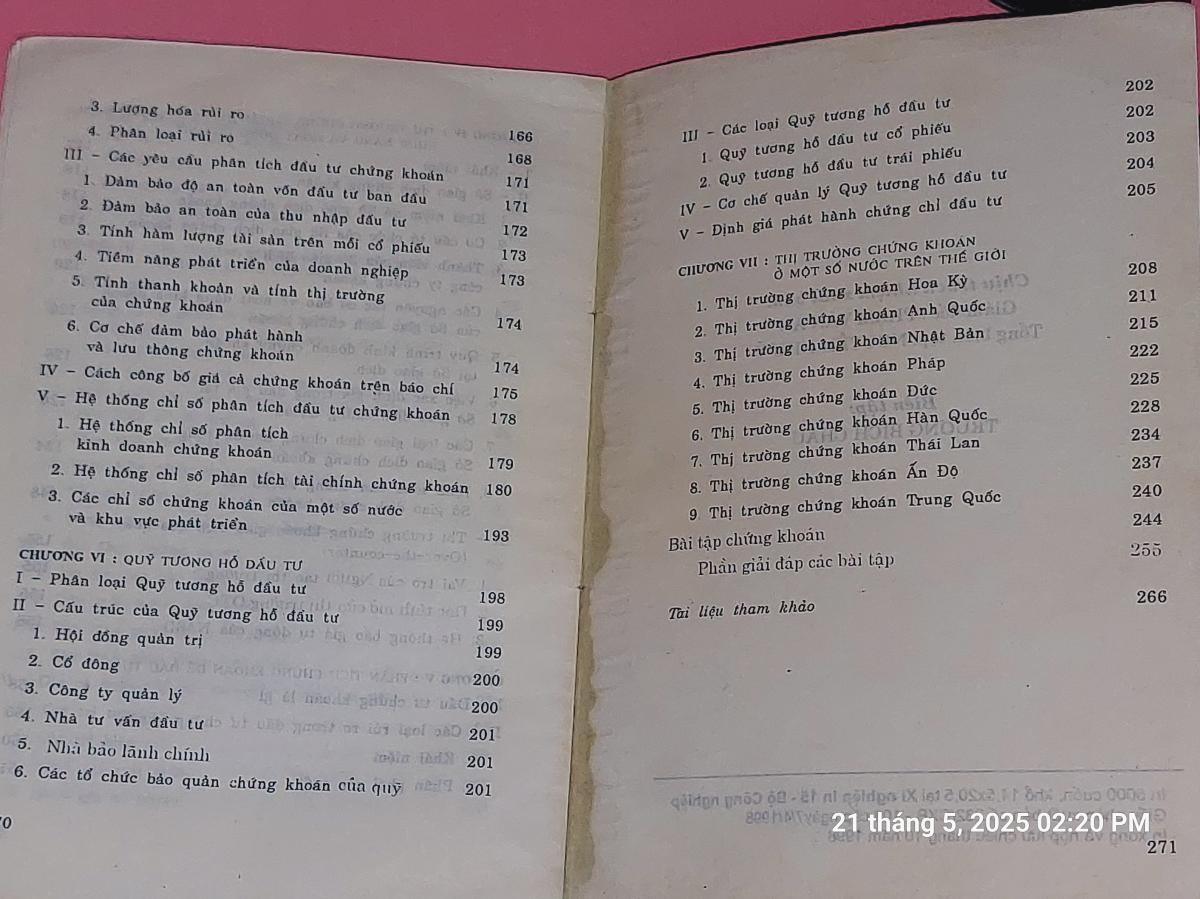 3. Lượng hóa rủi ro 166
4. Phân loại rủi ro 168
III - Các yêu cầu phân tích đầu tư chứng khoán 171
1. Đảm bảo độ an toàn vốn đầu tư ban đầu 171
2. Đảm bảo an toàn của thu nhập đầu tư 172
3. Tính hàm lượng tài sản trên mỗi cổ phiếu 173
4. Tiềm năng phát triển của doanh nghiệp 173
5. Tính thanh khoản và tính thị trường
của chứng khoán 174
6. Cơ chế đảm bảo phát hành
và lưu thông chứng khoán 174
IV - Cách công bố giá cả chứng khoán trên báo chí 175
V - Hệ thống chỉ số phân tích đầu tư chứng khoán 178
1. Hệ thống chỉ số phân tích
kinh doanh chứng khoán 179
2. Hệ thống chỉ số phân tích tài chính chứng khoán 180
3. Các chỉ số chứng khoán của một số nước
và khu vực phát triển 193
CHƯƠNG VI : QUỸ TƯƠNG HỖ ĐẦU TƯ
I - Phân loại Quỹ tương hỗ đầu tư 198
II - Cấu trúc của Quỹ tương hỗ đầu tư 199
1. Hội đồng quản trị 199
2. Cổ đông 200
3. Công ty quản lý 200
4. Nhà tư vấn đầu tư 201
5. Nhà bảo lãnh chính 201
6. Các tổ chức bảo quản chứng khoán của quỹ 201
III - Các loại Quỹ tương hỗ đầu tư 202
1. Quỹ tương hỗ đầu tư cổ phiếu 202
2. Quỹ tương hỗ đầu tư trái phiếu 203
IV - Cơ chế quản lý Quỹ tương hỗ đầu tư 204
V - Định giá phát hành chứng chỉ đầu tư 205
CHƯƠNG VII : THỊ TRƯỜNG CHỨNG KHOÁN
Ở MỘT SỐ NƯỚC TRÊN THẾ GIỚI
1. Thị trường chứng khoán Hoa Kỳ 208
2. Thị trường chứng khoán Anh Quốc 211
3. Thị trường chứng khoán Nhật Bản 215
4. Thị trường chứng khoán Pháp 222
5. Thị trường chứng khoán Đức 225
6. Thị trường chứng khoán Hàn Quốc 228
7. Thị trường chứng khoán Thái Lan 234
8. Thị trường chứng khoán Ấn Độ 237
9. Thị trường chứng khoán Trung Quốc 240
Bài tập chứng khoán 244
Phần giải đáp các bài tập 255
Tài liệu tham khảo 266
21 tháng 5, 2025 02:20 PM
271